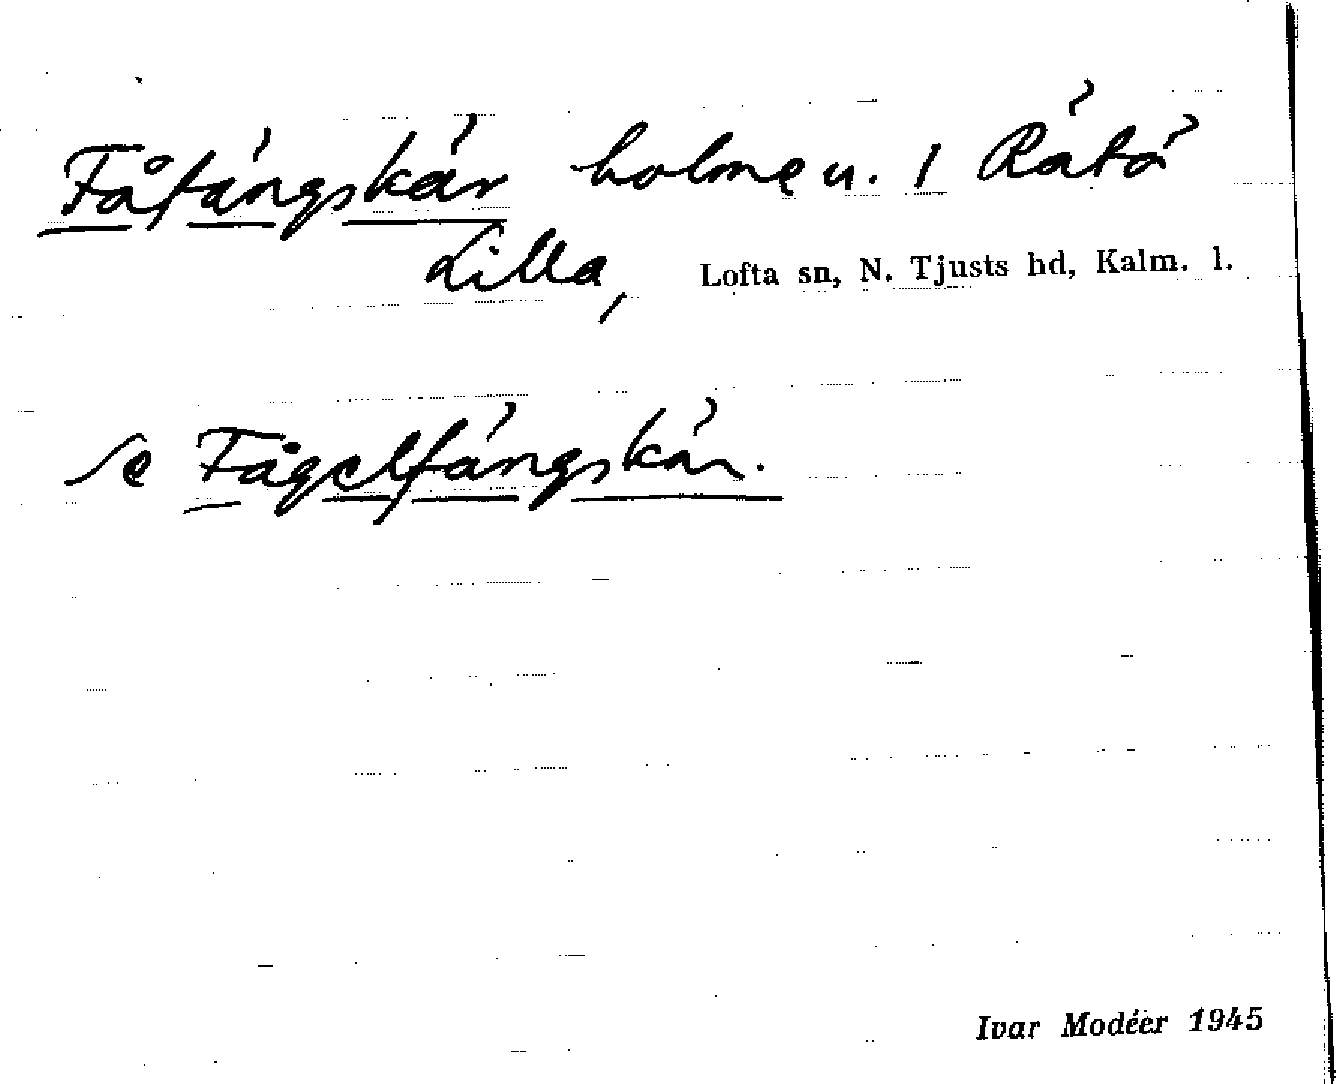 Fåfängskär holme u. 1 Rätö
Lilla, Lofta sn, N. Tjusts hd, Kalm. l.
se Fågelfängskär.
Ivar Modéer 1945